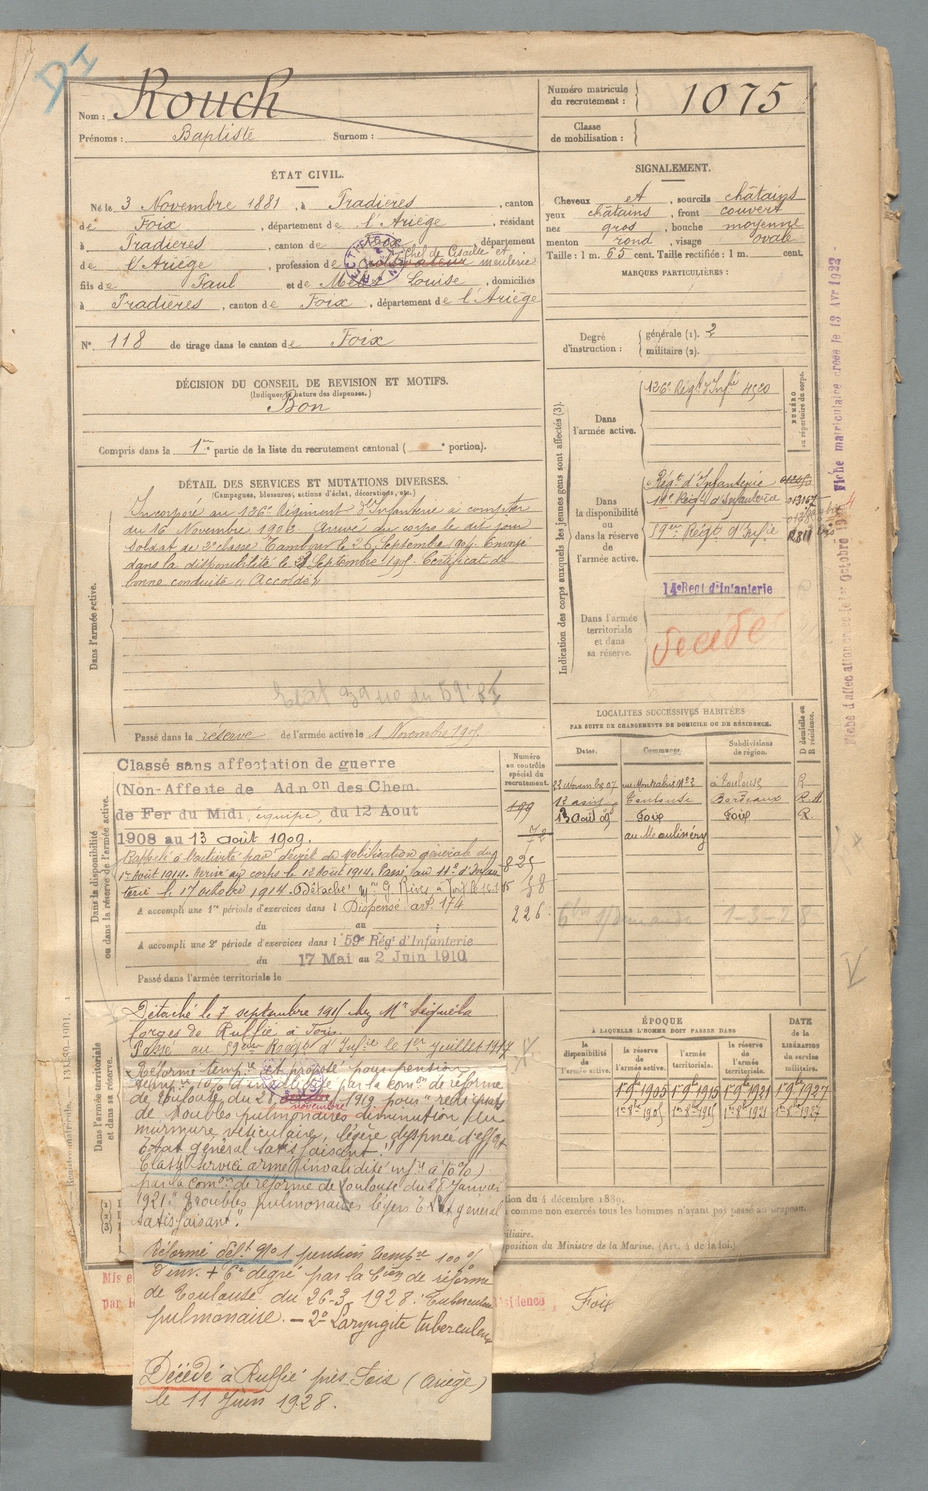 DI
Nom : Rouch
Prénoms : Baptiste Surnom :
Numéro matricule
du recrutement : 1075
Classe
de mobilisation :
ÉTAT CIVIL.
Né le 3 Novembre 1881, à Pradières, canton
de Foix, département de l'Ariège, résidant
à Pradières, canton de Foix, département
de l'Ariège, profession de cultivateur
fils de Paul et de Louise, domiciliés
à Pradières, canton de Foix, département de l'Ariège
N° 118 de tirage dans le canton de Foix
DÉCISION DU CONSEIL DE REVISION ET MOTIFS.
(Indiquer la nature des dispenses.)
Bon
Compris dans la 1re partie de la liste du recrutement cantonal ( portion).
SIGNALEMENT.
Cheveux et, sourcils châtains
yeux châtains, front couvert
nez gros, bouche moyenne
menton rond, visage ovale
Taille : 1 m. 65 cent. Taille rectifiée : 1 m. cent.
MARQUES PARTICULIÈRES :
Degré
d'instruction :
générale (1). 2
militaire (2).
DÉTAIL DES SERVICES ET MUTATIONS DIVERSES.
(Campagnes, blessures, actions d'éclat, décorations, etc.)
Dans l'armée active.
Incorporé au 126e Régiment d'Infanterie à compter
du 16 Novembre 190 Arrivé au corps le dit jour
soldat de 2e classe Tambour le 26 Septembre 1904 Envoyé
dans la disponibilité le Septembre 1905 Certificat de
bonne conduite " Accordé"
du 59e
Passé dans la réserve de l'armée active le 1 Novembre 1905
Indication des corps auxquels les jeunes gens sont affectés (3).
NUMÉRO
au répertoire du corps.
Dans
l'armée active.
126e Régt d'Infie 4520
Dans
la disponibilité
ou
dans la réserve
de
l'armée active.
Régt d'Infanterie
11e Régt d'Infanterie 013167
Régt d'Infie
14e Regt d'Infanterie
Dans l'armée
territoriale
et dans
sa réserve.
décédé
Fiche matriculaire créée le 13 Avr 1922
LOCALITÉS SUCCESSIVES HABITÉES
PAR SUITE DE CHANGEMENTS DE DOMICILE OU DE RÉSIDENCE.
D domicile ou
R résidence.
Dates. Communes. Subdivisions
de région.
à Toulouse R
Toulouse Bordeaux R
13 août 09 Foix Foix R.
au Moulinéry
1-3-28
Dans la disponibilité
ou dans la réserve de l'armée active.
Numéro
au contrôle
spécial du
recrutement.
Classé sans affectation de guerre
(Non-Affecté de Adnon des Chem.
de Fer du Midi, équipe, du 12 Aout
1908 au 13 août 1909.
Rappelé à l'activité par décret de Mobilisation générale du
1er Août 1914. Arrivé au corps le 12 Août 1914. Passé au 11e d'Infan-
terie le 17 octobre 1914. Détaché Mr G. Rives, à Foix
199
226
A accompli une 1re période d'exercices dans l Dispensé art. 174
du au
A accompli une 2e période d'exercices dans l 59e Régt d'Infanterie
du 17 Mai au 2 Juin 1910
Passé dans l'armée territoriale le
Dans l'armée territoriale
et dans sa réserve.
Détaché le 7 septembre 1915 chez Mr
forges de Ruffié à Foix.
Passé au 59eme Régt d'Infie le 1er Juillet 1917
Réforme tempre et proposé pour pension
tempre 10% d'invalidité par la Comon de réforme
de Toulouse du 28 novembre 1919 pour " reliquats
de troubles pulmonaires diminution du
murmure vésiculaire, légère dyspnée d'effort
Etat général satisfaisant."
Classé Service armé (invalidité infre à 10%)
par la Comon de réforme de Toulouse du 28 Janvier
1921 : " Troubles pulmonaires légers Etat général
satisfaisant".
Réformé déft N°1 pension tempre 100%
d'inv. + 6e degré par la Con de réforme
de Toulouse du 26-3-1928. Tuberculose
pulmonaire. - 2° Laryngite tuberculeuse
Décédé à Ruffié près Foix (Ariège)
le 11 Juin 1928.
ÉPOQUE
À LAQUELLE L'HOMME DOIT PASSER DANS
DATE
de la
LIBÉRATION
du service
militaire.
la
disponibilité
de
l'armée active.
la réserve
de
l'armée active.
l'armée
territoriale.
la réserve
de
l'armée
territoriale.
1-9bre 1905 1-9bre 1915 1-9bre 1921 1-9bre 1927
1er 8bre 1905 1er 8bre 1915 1er 8bre 1921 1er 8bre 1927
du 4 décembre 1889.
comme non exercés tous les hommes n'ayant pas passé au drapeau.
position du Ministre de la Marine. (Art. 4 de la loi.)
Mis e
par résidence, Foix